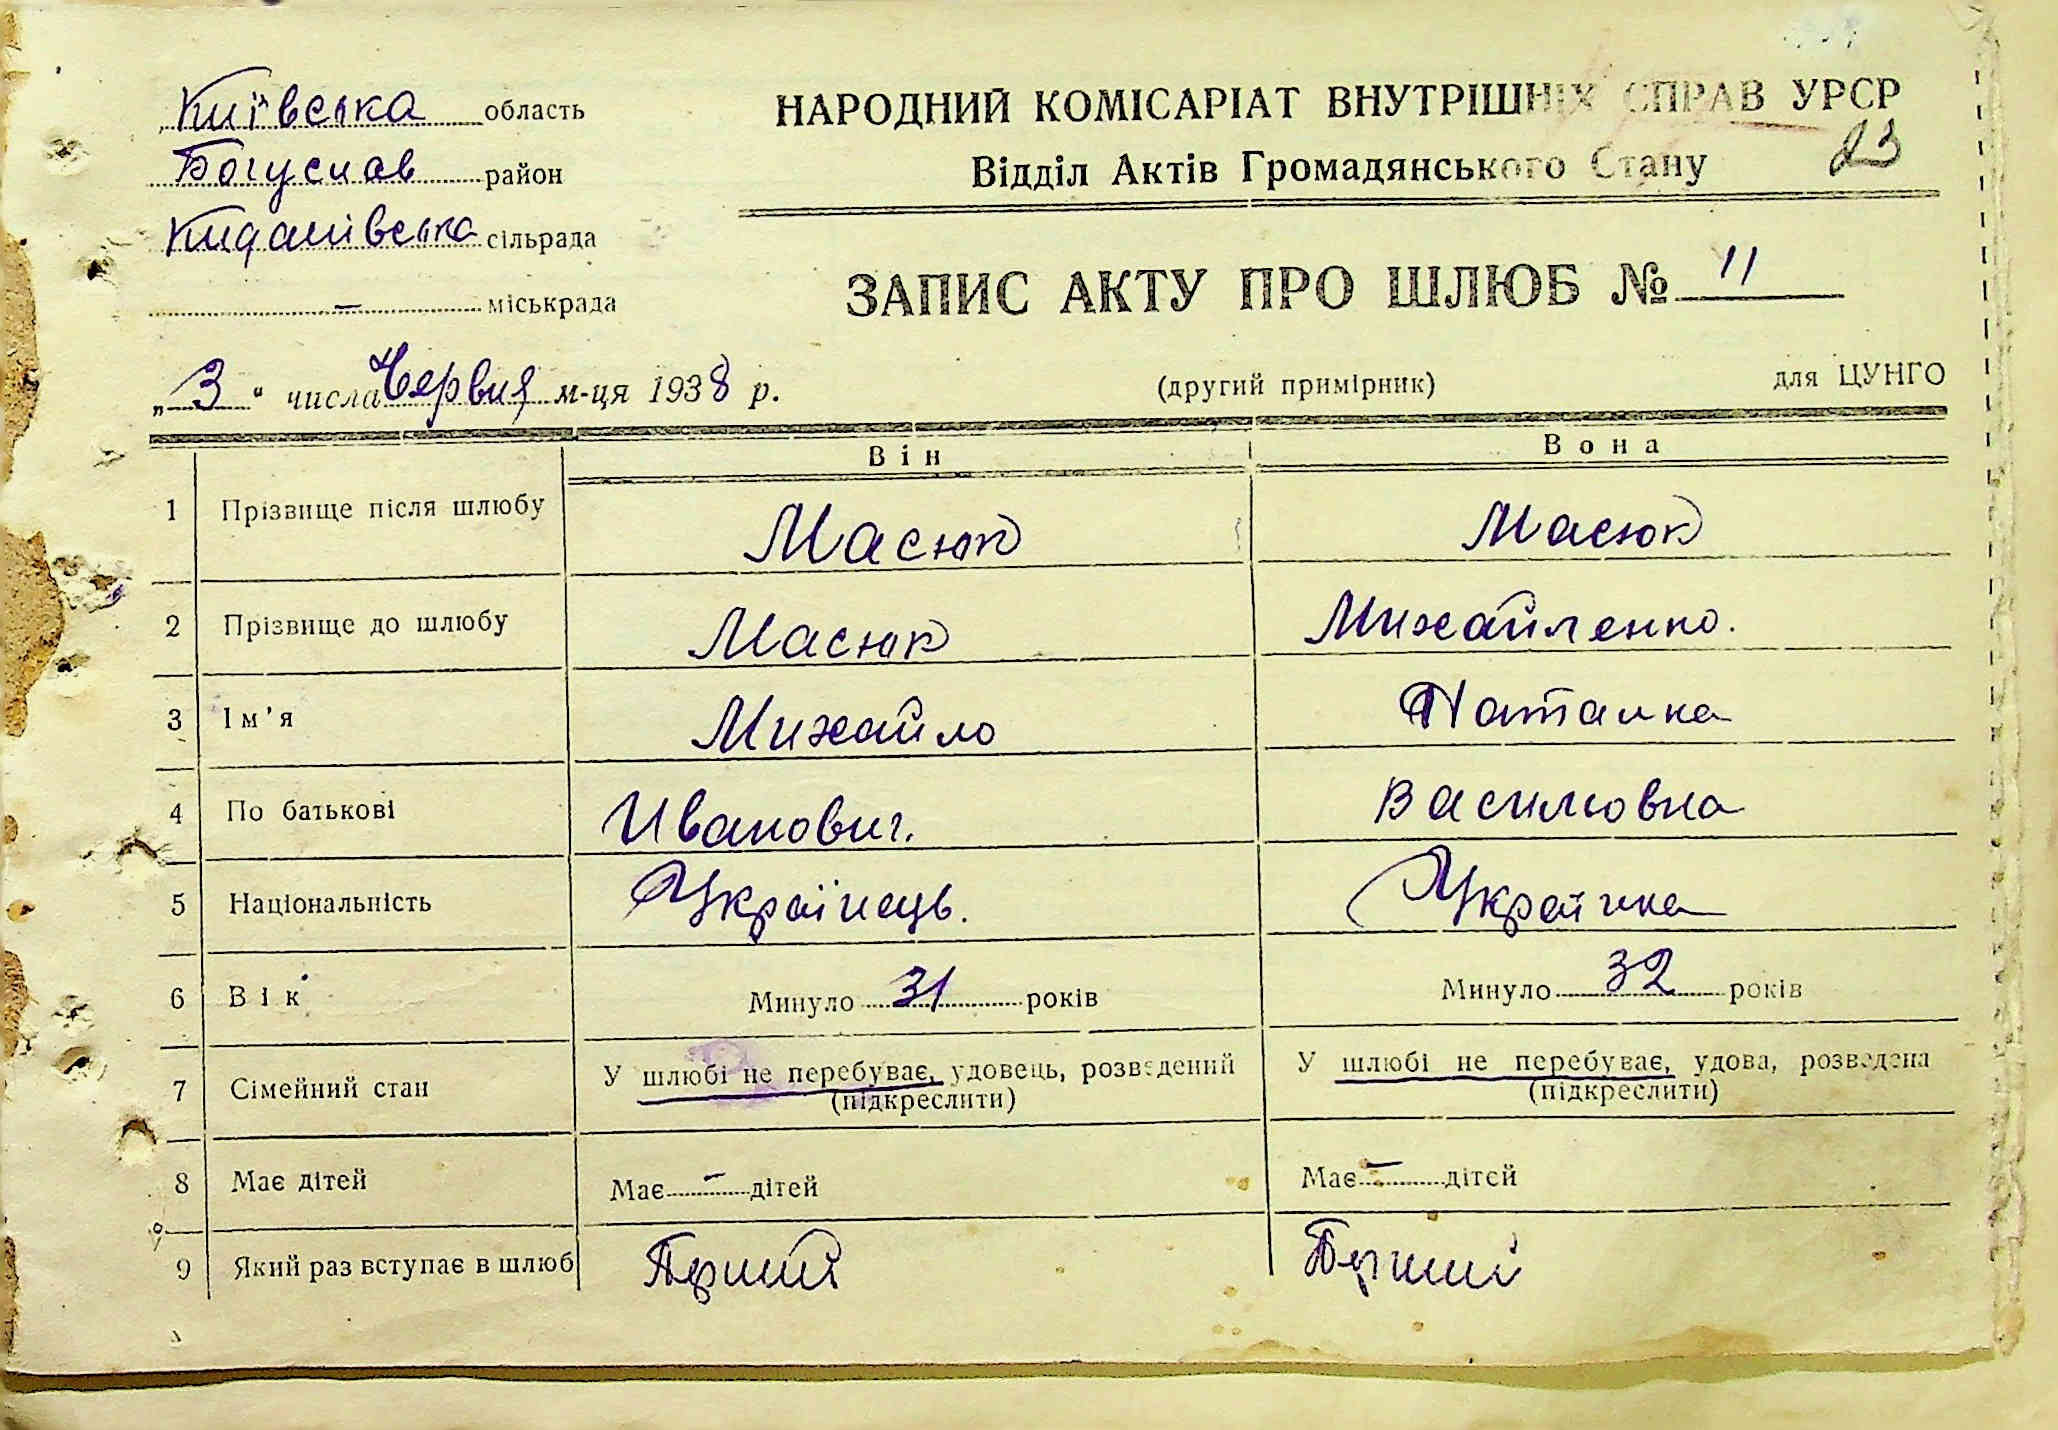 Київська область
НАРОДНИЙ КОМІСАРІАТ ВНУТРІШНІХ СПРАВ УРСР
Богуслав район
Відділ Актів Громадянського Стану
23
Кидашівська сільрада
ЗАПИС АКТУ ПРО ШЛЮБ № 11
— міськрада
„3“ числа Червня м-ця 1938 р.
(другий примірник)
для ЦУНГО
Він Вона
1 Прізвище після шлюбу Масюк Масюк
2 Прізвище до шлюбу Масюк Михайленко.
3 Ім'я Михайло Наталка
4 По батькові Иванович. Василювна
5 Національність Українець. Українка
6 Вік Минуло 31 років Минуло 32 років
7 Сімейний стан У шлюбі не перебуває, удовець, розведений У шлюбі не перебуває, удова, розведена
(підкреслити) (підкреслити)
8 Має дітей Має — дітей Має — дітей
9 Який раз вступає в шлюб Перший Перший